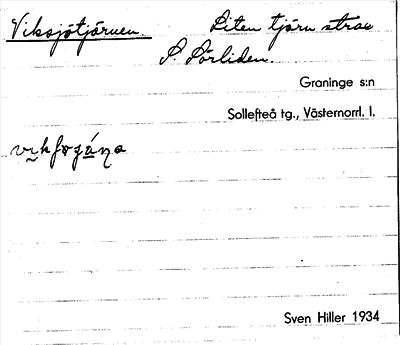 Viksjötjärnen. Liten tjärn strax
S. Sörliden.
Graninge s:n
Sollefteå tg., Västernorrl. l.
Sven Hiller 1934